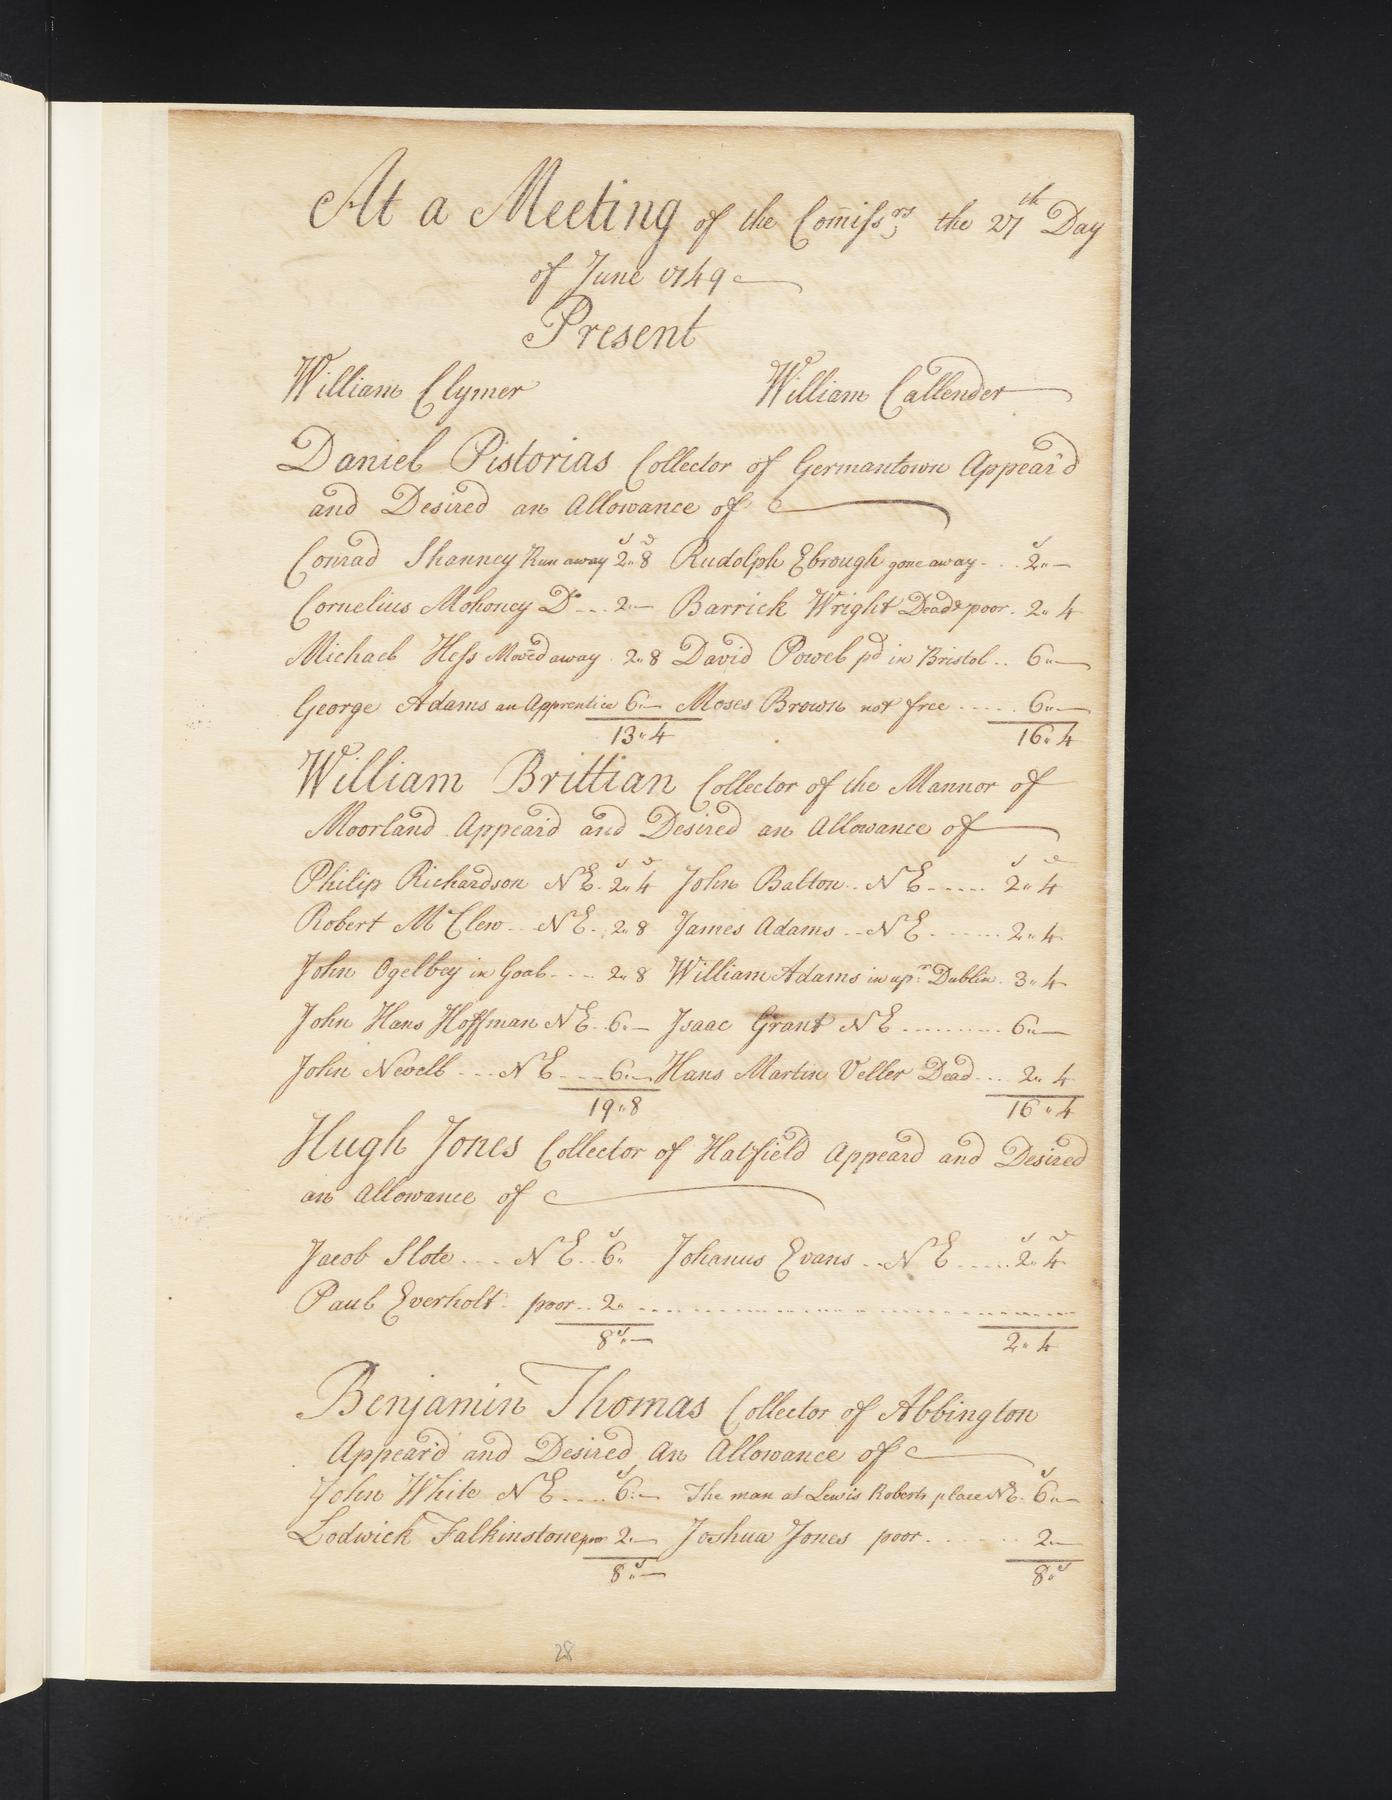 At a Meeting of the Com̄issrs the 27th Day
of June 1749
Present
William Clymer William Callender
Daniel Pistorias Collector of Germantown Appear'd
and Desired an Allowance of
Conrad Shanney Run away 2s„8d Rudolph Ebrough gone away - . . 2s„—
Cornelius Mohoney Do - - - 2„— Barrick Wright Dead & poor . 2„4
Michael Hess Moved away . 2„8 David Powel pd in Bristol . . 6„—
George Adams an Apprentice 6„— Moses Brown not free - - - - - 6„—
13„4 16„4
William Brittian Collector of the Mannor of
Moorland Appear'd and Desired an Allowance of
Philip Richardson N E . 2s„4d John Balton . . N E - - - - - 2s„4d
Robert McClew - - N E - . 2„8 James Adams - - N E - - - - - - 2„4
John Ogelbey in Goal - - - - 2„8 William Adams in upr Dublin . 3„4
John Hans Hoffman N E . . 6„— Isaac Grant N E - - - - - - - - - 6„—
John Newell - - - N E - - - 6„— Hans Martin Veller Dead - - - 2„4
19„8 16„4
Hugh Jones Collector of Hatfield Appeard and Desired
an Allowance of
Jacob Slote - - - - N E . . 6s„ Johanus Evans - . N E - - - - - 2s„4d
Paul Everholt - poor . . 2„ - - - - - - - - - - - - - - - - - - -
8s„— 2„4
Benjamin Thomas Collector of Abbington
Appear'd and Desired an Allowance of
John White N E - - - - 6s„— The man at Lewis Roberts place N E . 6s„—
Lodwick Falkinstone poor 2„— Joshua Jones poor - - - - - - - 2„—
8„s— 8„s
28